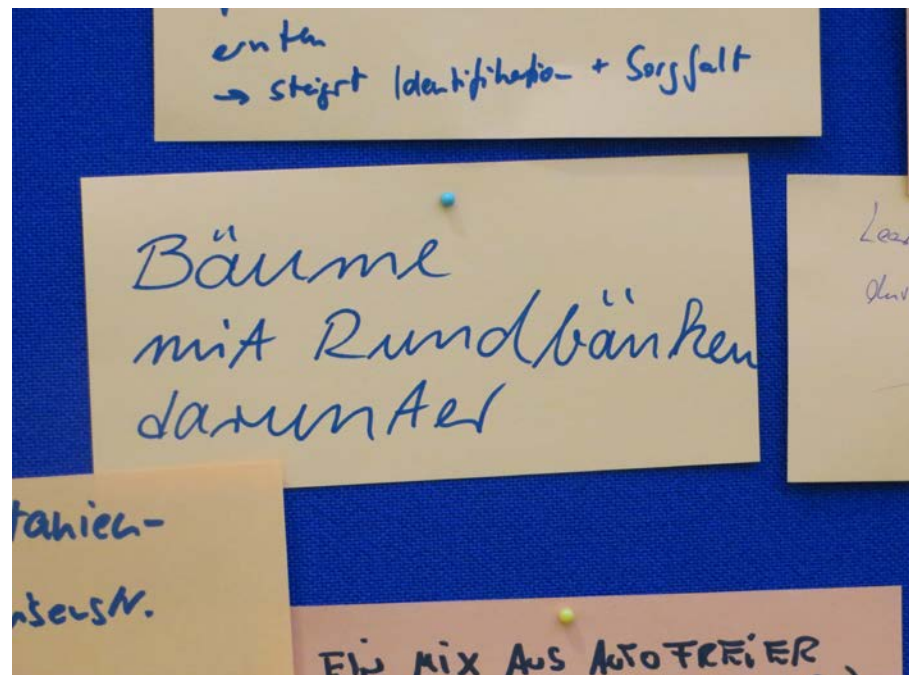 ernten
→ steigert Identifikation + Sorgfalt
Bäume
mit Rundbänken
darunter
tanien-
EIN MIX AUS AUTOFREIER